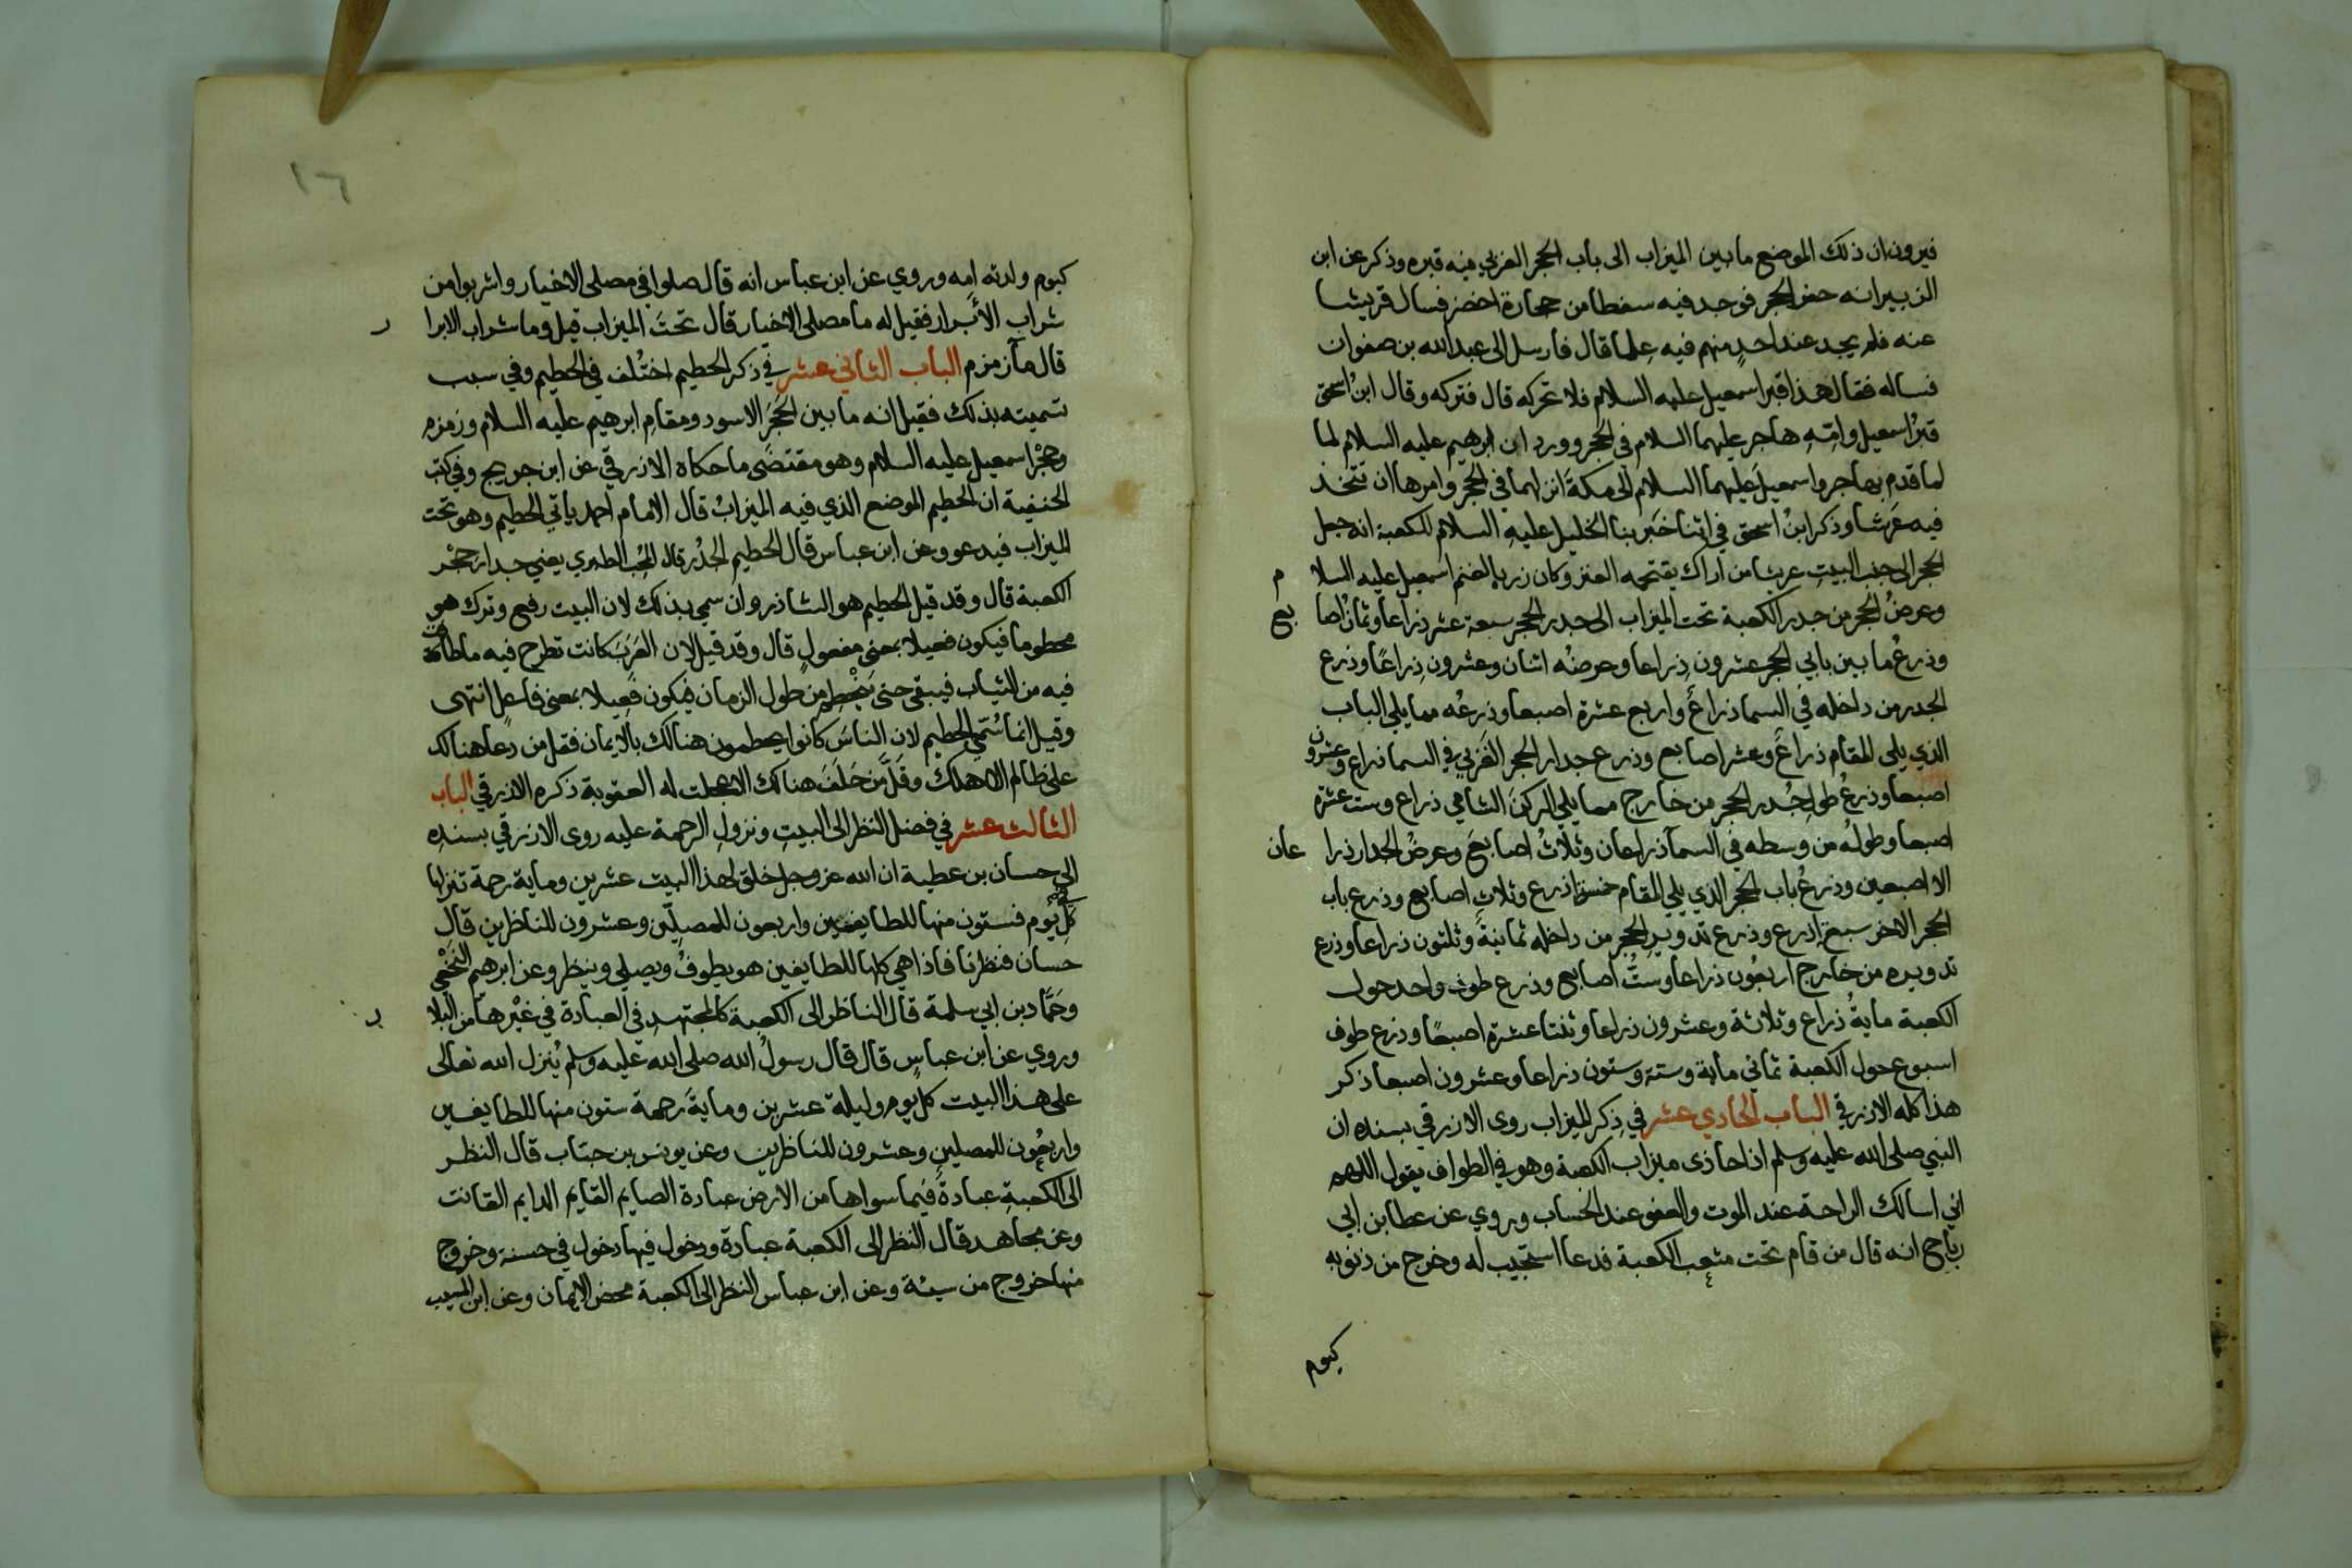 فيرون ان ذلك الموضع ما بين الميزاب الى باب الحجر الغربي فيه قبره وذكر عن ابن
الزبير انه حفر الحجر فوجد فيه سفطا من حجارة اخضر فسال قريشا
عنه فلم يجد عند احد منهم فيه علما قال فارسل الى عبد الله بن صفوان
فساله فقال هذا قبر اسمعيل عليه السلام فلا تحركه قال فتركه وقال ابن اسحق
قبر اسمعيل وامه هاجر عليهما السلام في الحجر وورد ان ابرهيم عليه السلام لما
لما قدم بهاجر واسمعيل عليهما السلام الى مكة انزلهما في الحجر وامرها ان تتخذ
فيه عرشا وذكر ابن اسحق في اثنا خبر بنا الخليل عليه السلام للكعبة انه جعل
الحجر الى جنب البيت عريشا من اراك يقتحمه العنز وكان زربا لغنم اسمعيل عليه السلام
وعرض الحجر من جدر الكعبة تحت الميزاب الى جدر الحجر سبعة عشر ذراعا وثمان اصابع
وذرع ما بين بابي الحجر عشرون ذراعا وعرضه اثنان وعشرون ذراعا وذرع
الجدر من داخله في السما ذراع واربع عشرة اصبعا وذرعه مما يلي الباب
الذي يلي المقام ذراع وعشر اصابع وذرع جدار الحجر الغربي في السما ذراع وعشرون
اصبعا وذرع طول جدر الحجر من خارج مما يلي الركن الشامي ذراع وست عشرة
اصبعا وطوله من وسطه في السمآ ذراعان وثلاث اصابع وعرض الجدار ذراعان
الا اصبعين وذرع باب الحجر الذي يلي المقام خمسة اذرع وثلاث اصابع وذرع باب
الحجر الاخر سبع اذرع وذرع تدوير الحجر من داخله ثمانية وثلثون ذراعا وذرع
تدويره من خارج اربعون ذراعا وست اصابع وذرع طوف واحد حول
الكعبة ماية ذراع وثلاثة وعشرون ذراعا وثنتا عشرة اصبعا وذرع طوف
اسبوع حول الكعبة ثماني ماية وستة وستون ذراعا وعشرون اصبعا ذكر
هذا كله الازرقي الباب الحادي عشر في ذكر الميزاب روى الازرقي بسنده ان
النبي صلى الله عليه وسلم اذا حاذى ميزاب الكعبة وهو في الطواف يقول اللهم
اني اسالك الراحة عند الموت والعفو عند الحساب وروي عن عطا بن ابي
رباح انه قال من قام تحت مثعب الكعبة فدعا استجيب له وخرج من ذنوبه
كيوم
١٦
كيوم ولدته امه وروي عن ابن عباس انه قال صلوا في مصلى الاخيار واشربوا من
شراب الأبرار فقيل له ما مصلى الاخيار قال تحت الميزاب قيل وما شراب الابرار
قال مآ زمزم الباب الثاني عشر في ذكر الحطيم اختلف في الحطيم وفي سبب
تسميته بذلك فقيل انه ما بين الحجر الاسود ومقام ابرهيم عليه السلام وزمزم
وحجر اسمعيل عليه السلام وهو مقتضى ما حكاه الازرقي عن ابن جريج وفي كتب
الحنفية ان الحطيم الموضع الذي فيه الميزاب قال الامام احمد ياتي الحطيم وهو تحت
الميزاب فيدعو وعن ابن عباس قال الحطيم الجدر قال المحب الطبري يعني جدار حجر
الكعبة قال وقد قيل الحطيم هو الشاذروان سمي بذلك لان البيت رفع وترك هو
محطوما فيكون فعيلا بمعنى مفعول قال وقد قيل لان العرب كانت تطرح فيه ما طافت
فيه من الثياب فيبقى حتى ينحطم من طول الزمان فيكون فعيلا بمعنى فاعل انتهى
وقيل انما سمي الحطيم لان الناس كانوا يحطمون هنالك بالايمان فقل من دعا هنالك
على ظالم الا هلك وقل من حلف هنالك الا عجلت له العقوبة ذكره الازرقي الباب
الثالث عشر في فضل النظر الى البيت ونزول الرحمة عليه روى الازرقي بسنده
الى حسان بن عطية ان الله عز وجل خلق لهذا البيت عشرين وماية رحمة تنزلها في
كل يوم فستون منها للطايفين واربعون للمصلين وعشرون للناظرين قال
حسان فنظرنا فاذا هي كلها للطايفين هو يطوف ويصلي وينظر وعن ابرهيم النخعي
وحماد بن ابي سلمة قال الناظر الى الكعبة كالمجتهد في العبادة في غيرها من البلاد
وروي عن ابن عباس قال قال رسول الله صلى الله عليه وسلم ينزل الله تعالى
على هذا البيت كل يوم وليلة عشرين وماية رحمة ستون منها للطايفين
واربعون للمصلين وعشرون للناظرين وعن يونس بن خباب قال النظر
الى الكعبة عبادة فيما سواها من الارض عبادة الصايم القايم الدايم القانت
وعن مجاهد قال النظر الى الكعبة عبادة ودخول فيها دخول في حسنة وخروج
منها خروج من سيئة وعن ابن عباس النظر الى الكعبة محض الايمان وعن ابن المسيب